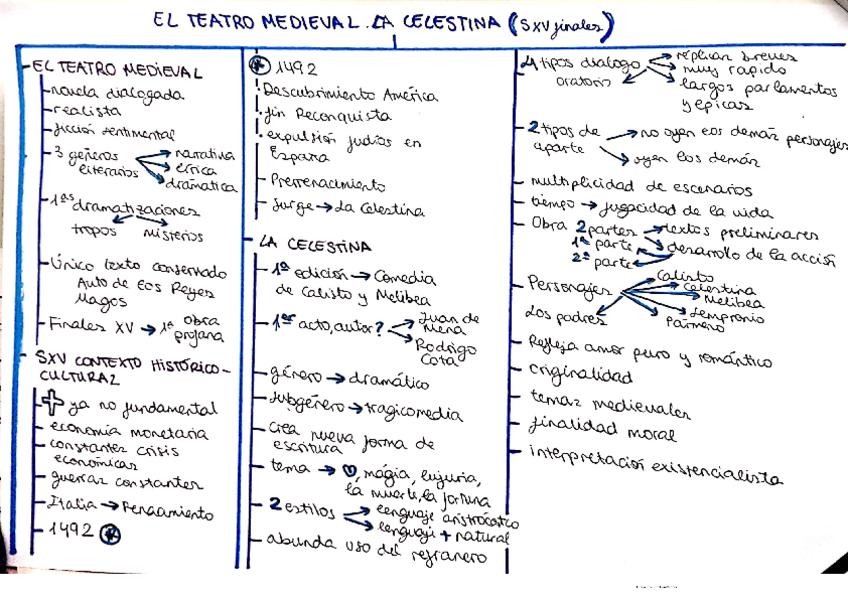 EL TEATRO MEDIEVAL. LA CELESTINA (SXV finales)
EL TEATRO MEDIEVAL
novela dialogada
realista
ficción sentimental
3 géneros → narrativa
literarios → lírica
→ dramática
1as dramatizaciones
tropos misterios
Único texto conservado
Auto de los Reyes
Magos
Finales XV → 1ª obra
profana
SXV CONTEXTO HISTÓRICO-
CULTURAL
✚ ya no fundamental
economía monetaria
constantes crisis
económicas
guerras constantes
Italia → Pensamiento
1492 *
* 1492
Descubrimiento América
fin Reconquista
expulsión judíos en
España
Prerrenacimiento
Surge → La Celestina
LA CELESTINA
1ª edición → Comedia
de Calisto y Melibea
1er acto, autor? → Juan de
Mena
→ Rodrigo
Cota
género → dramático
subgénero → tragicomedia
crea nueva forma de
escritura
tema → ♡, mágia, lujuria,
la muerte, la fortuna
2 estilos → lenguaje aristrócatico
→ lenguaje + natural
abunda uso del refranero
4 tipos dialogo → réplicas breves
oratorio → muy rapido
→ largos parlamentos
y epicas
2 tipos de → no oyen los demás personajes
aparte → oyen los demás
multiplicidad de escenarios
tiempo → fugacidad de la vida
Obra 2 partes → textos preliminares
1ª parte → desarrollo de la acción
2ª parte
Personajes → Calisto
→ Celestina
→ Melibea
→ Sempronio
→ Pármeno
Los padres
Refleja amor puro y romántico
originalidad
temas medievales
finalidad moral
interpretación existencialista